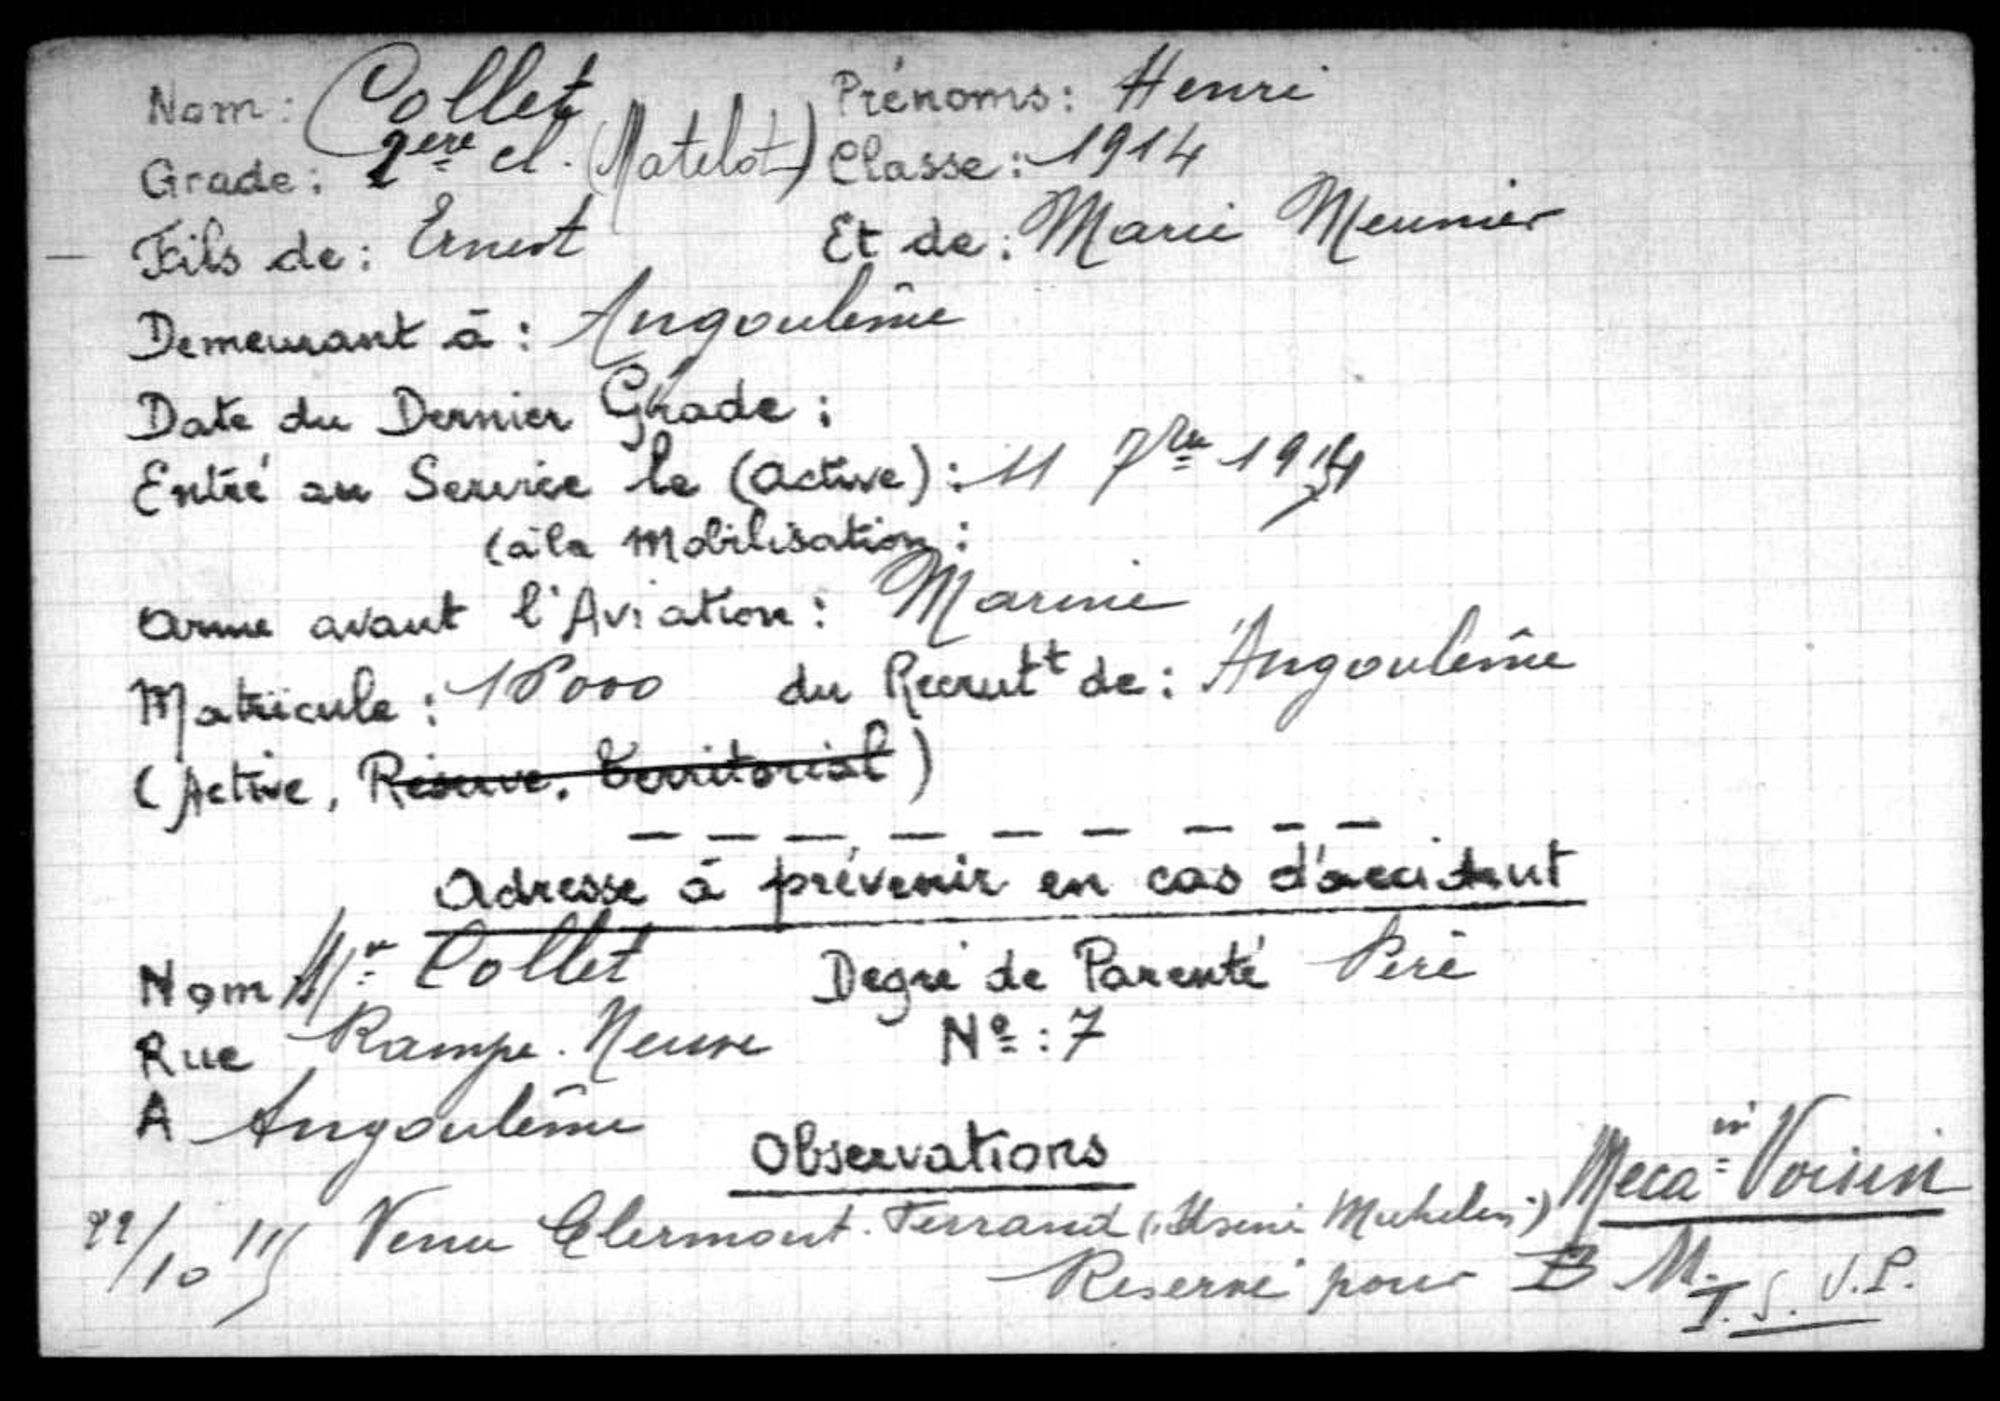 Nom : Collet Prénoms : Henri
Grade : 2ère cl. (Matelot) Classe : 1914
Fils de : Ernest Et de : Marie Meunier
Demeurant à : Angoulême
Date du Dernier Grade :
Entré au Service le (Active) : 11 7bre 1914
(à la Mobilisation :
Arme avant l'Aviation : Marine
Matricule : 18000 du Recrutt de : Angoulême
(Active, Réserve, Territorial)
Adresse à prévenir en cas d'accident
Nom Mr Collet Degré de Parenté Père
Rue Rampe-Neuve Nº : 7
A Angoulême
Observations
22/10 15 Venu Clermont-Ferrand (Usine Michelin) Mecain Voisin
Réservé pour B M.
T. S. V. P.